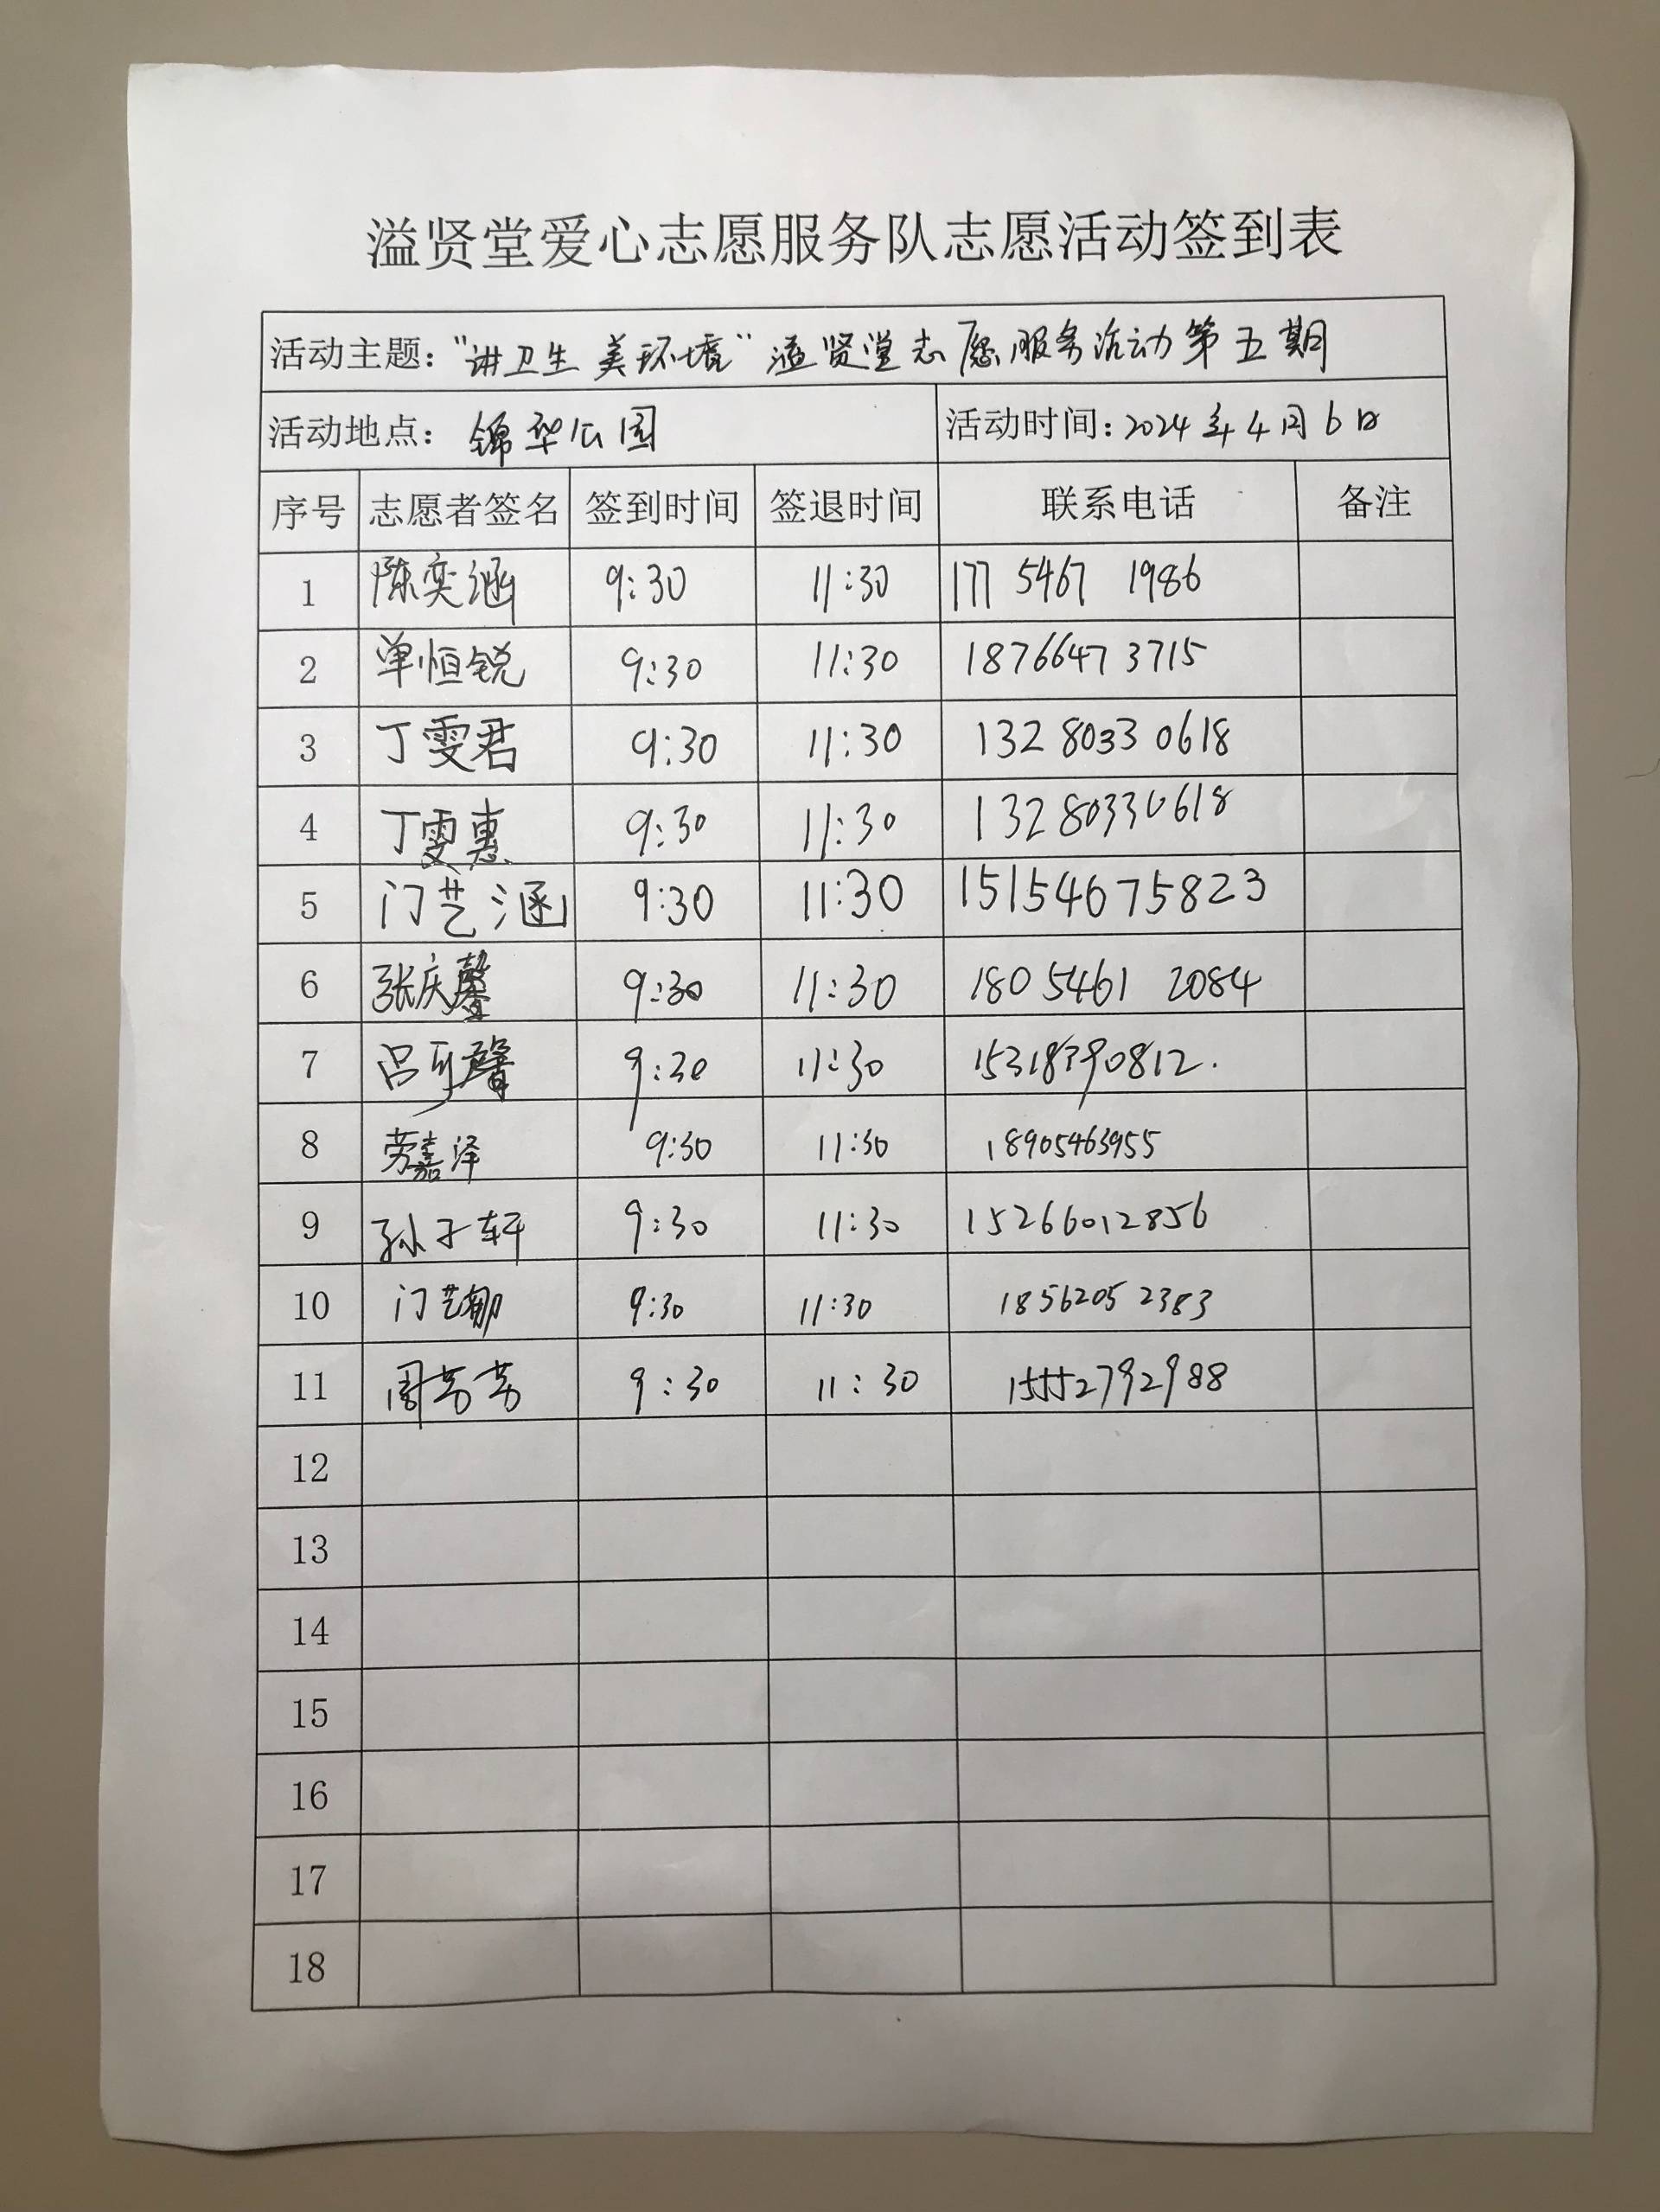 溢贤堂爱心志愿服务队志愿活动签到表
活动主题："讲卫生 美环境"溢贤堂志愿服务活动第五期
活动地点：锦华公园 活动时间：2024年4月6日
序号 志愿者签名 签到时间 签退时间 联系电话 备注
1 陈奕涵 9:30 11:30 177 5467 1986
2 单恒锐 9:30 11:30 1876647 3715
3 丁雯君 9:30 11:30 132 8033 0618
4 丁雯惠 9:30 11:30 13280330618
5 门艺涵 9:30 11:30 15154675823
6 张庆馨 9:30 11:30 180 5461 2084
7 吕可馨 9:30 11:30 15318390812.
8 劳嘉泽 9:30 11:30 18905463955
9 孙子轩 9:30 11:30 15266012856
10 门艺 9:30 11:30 1856205 2383
11 周芳芳 9:30 11:30 15552792988
12
13
14
15
16
17
18